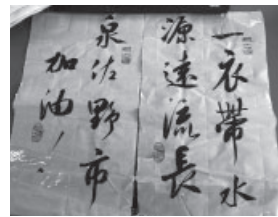 一衣帶水
源遠流長
泉佐野市
加油!